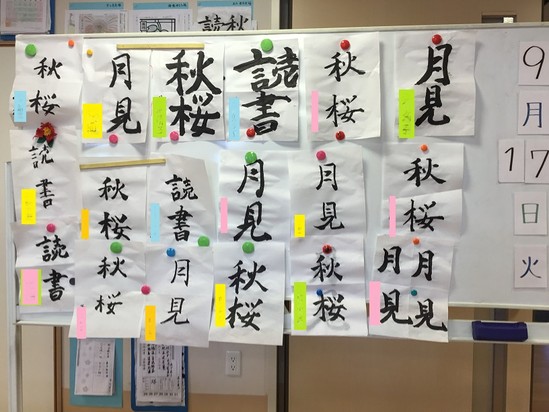 読秋
秋桜
月見
秋桜
読書
秋桜
月見
読書
秋桜
読書
月見
月見
秋桜
読書
秋桜
月見
秋桜
秋桜
月見
月見
9
月
17
日
火